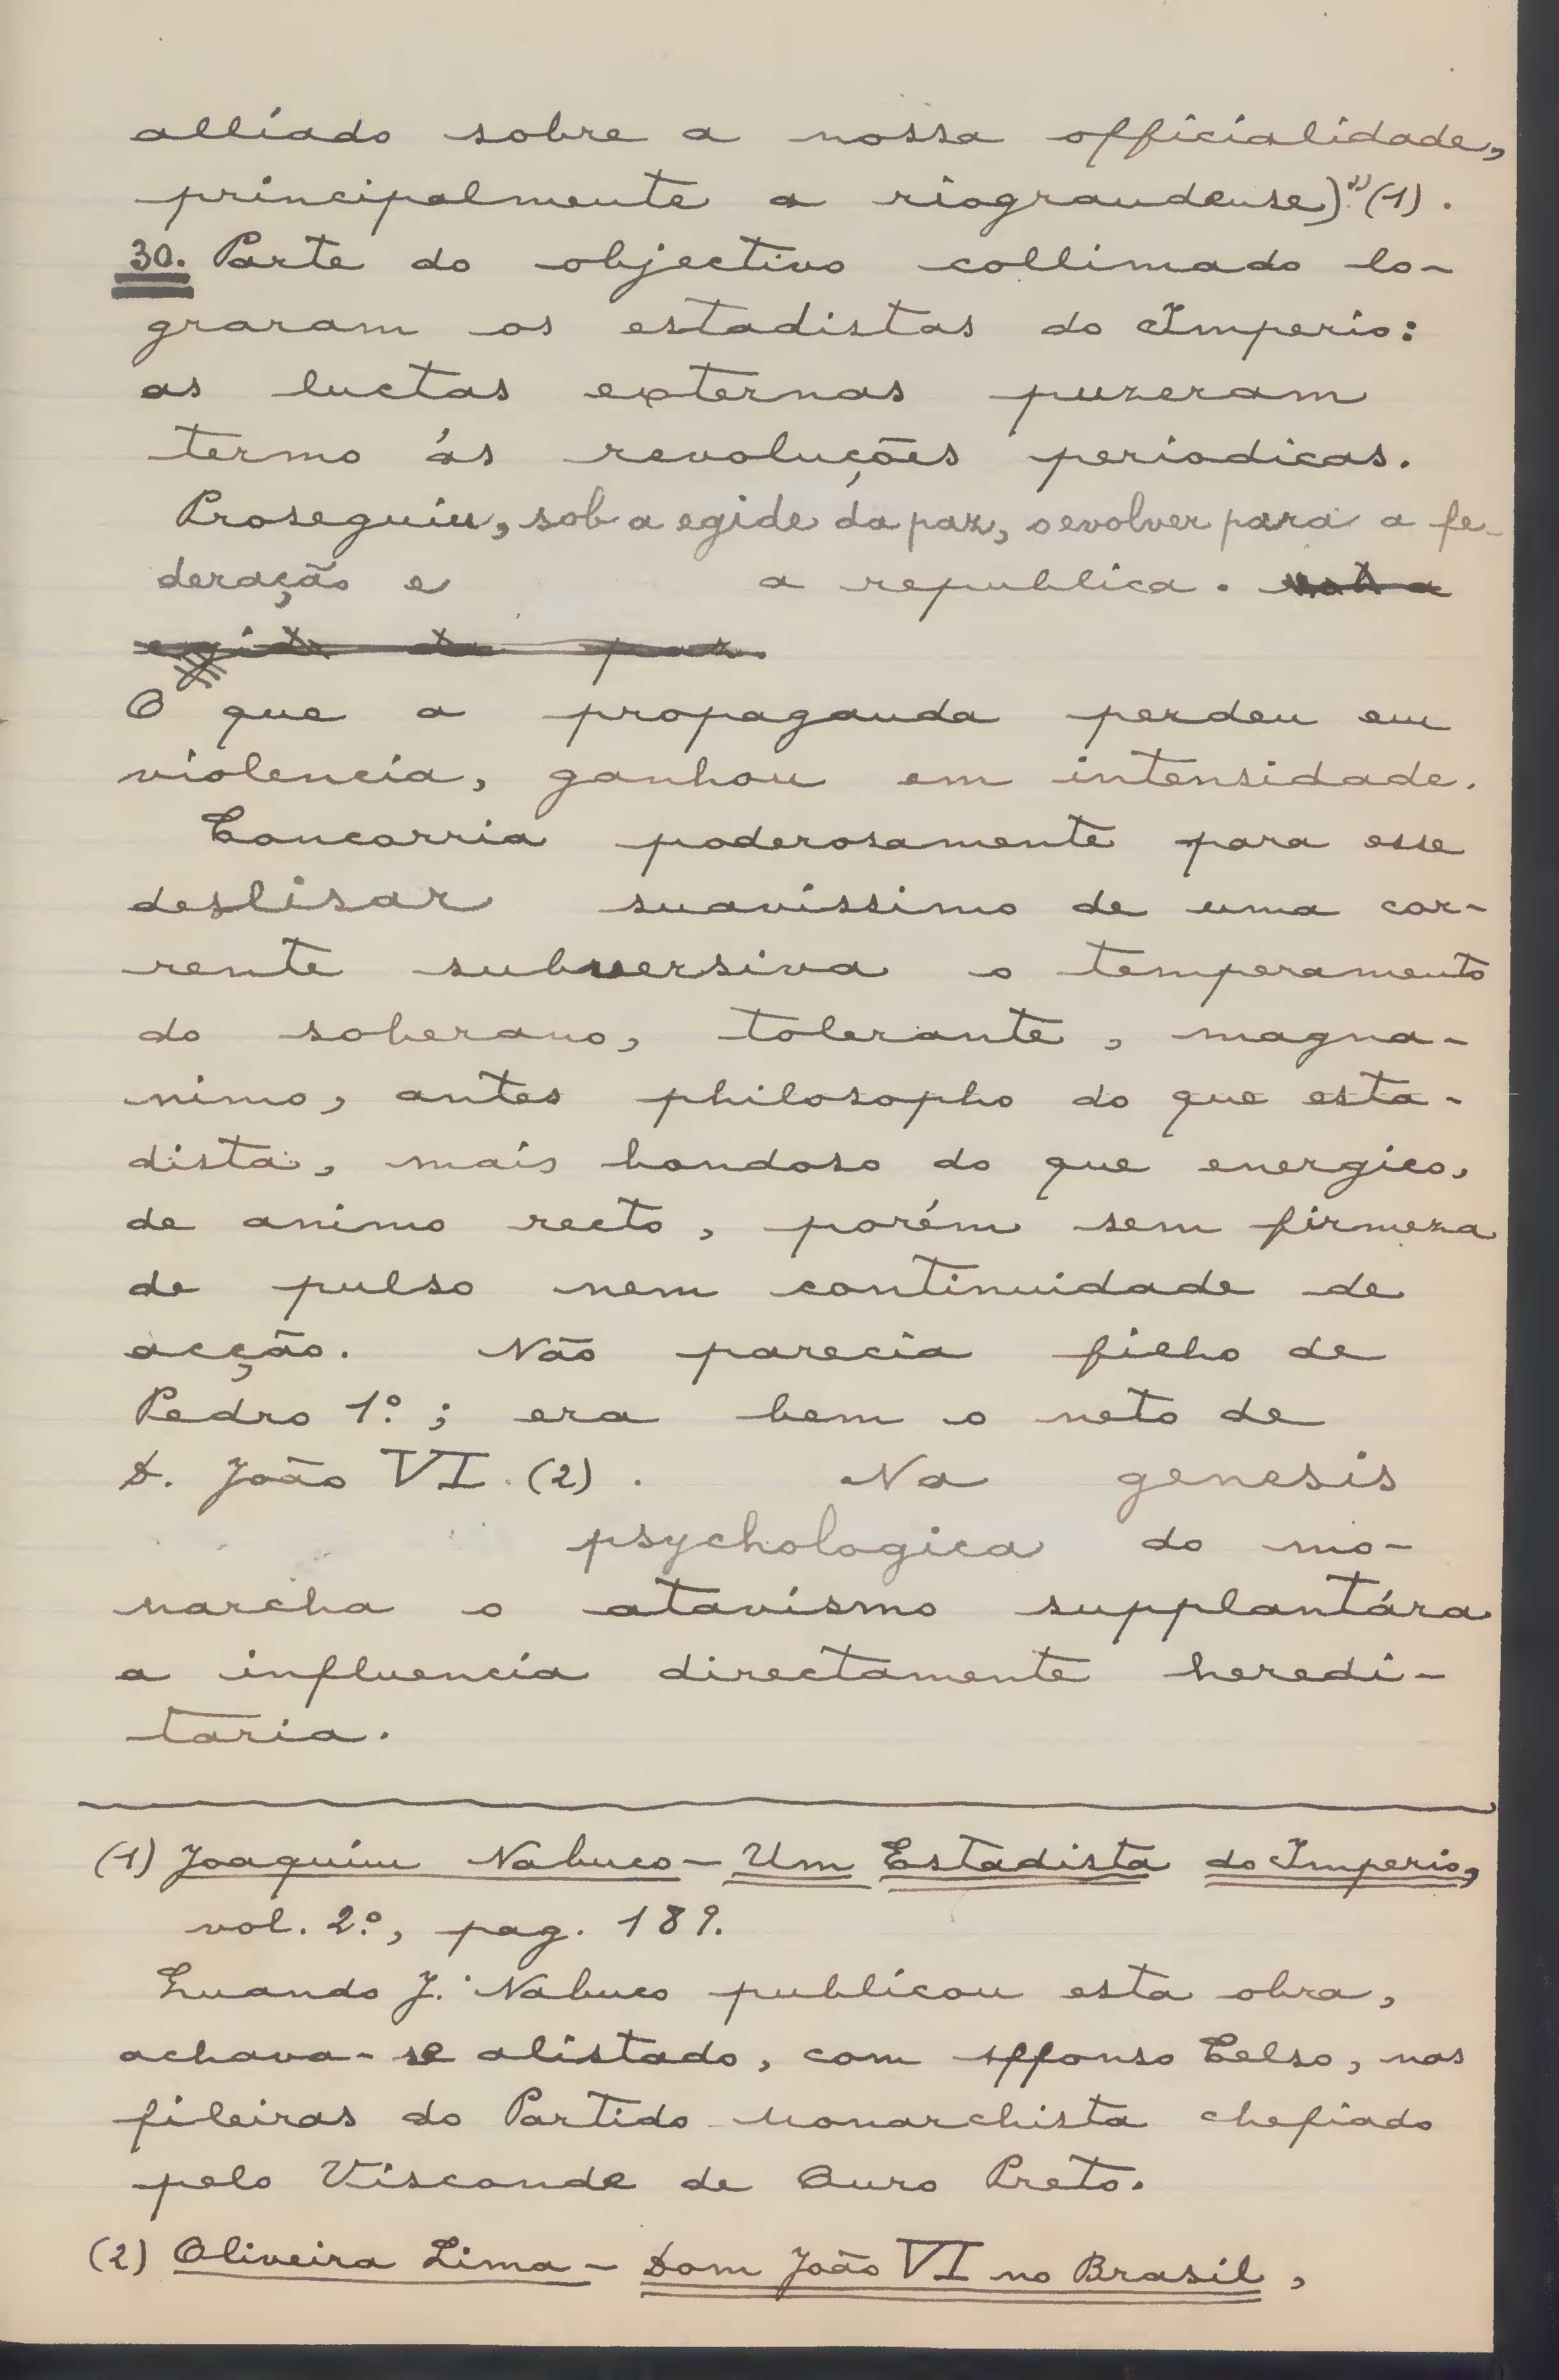 alliado sobre a nossa officialidade,
principalmente a riograndense)." (1).
30. Parte do objectivo collimado lo-
graram os estadistas do Imperio:
as luctas externas puzeram
termo ás revoluções periodicas.
Proseguiu, sob a egide da paz, o evolver para a fe-
deração e a republica. sob a
egide da paz.
O que a propaganda perdeu em
violencia, ganhou em intensidade.
Concorria poderosamente para esse
deslisar suavissimo de uma cor-
rente subversiva o temperamento
do soberano, tolerante, magna-
nimo, antes philosopho do que esta-
dista, mais bondoso do que energico,
de animo recto, porém sem firmeza
de pulso nem continuidade de
acção. Não parecia filho de
Pedro 1º.; era bem o neto de
D. João VI. (2). Na genesis
psychologica do mo-
narcha o atavismo supplantára
a influencia directamente heredi-
taria.
(1) Joaquim Nabuco - Um Estadista do Imperio,
vol. 2º., pag. 189.
Quando J. Nabuco publicou esta obra,
achava-se alistado, com Affonso Celso, nas
fileiras do Partido Monarchista chefiado
pelo Visconde de Ouro Preto.
(2) Oliveira Lima - Dom João VI no Brasil,